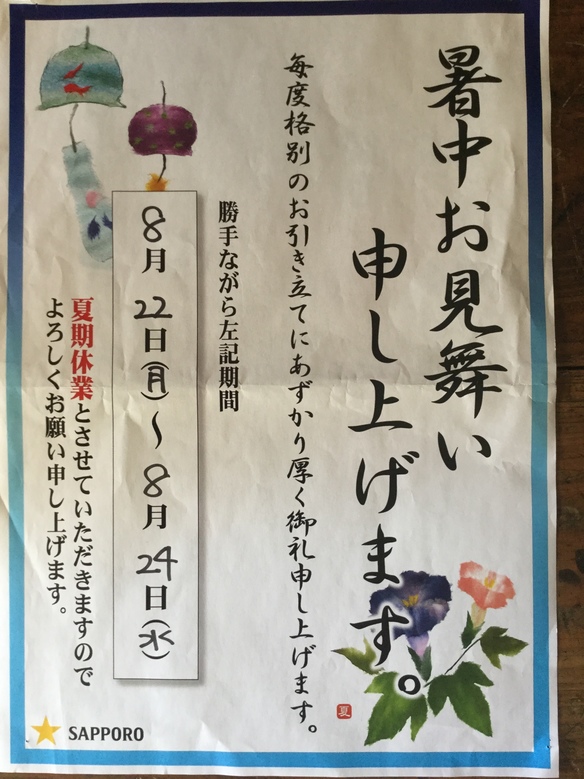 暑中お見舞い
申し上げます。
毎度格別のお引き立てにあずかり厚く御礼申し上げます。
夏
勝手ながら左記期間
8月22日(月)〜8月24日(水)
夏期休業とさせていただきますので
よろしくお願い申し上げます。
SAPPORO